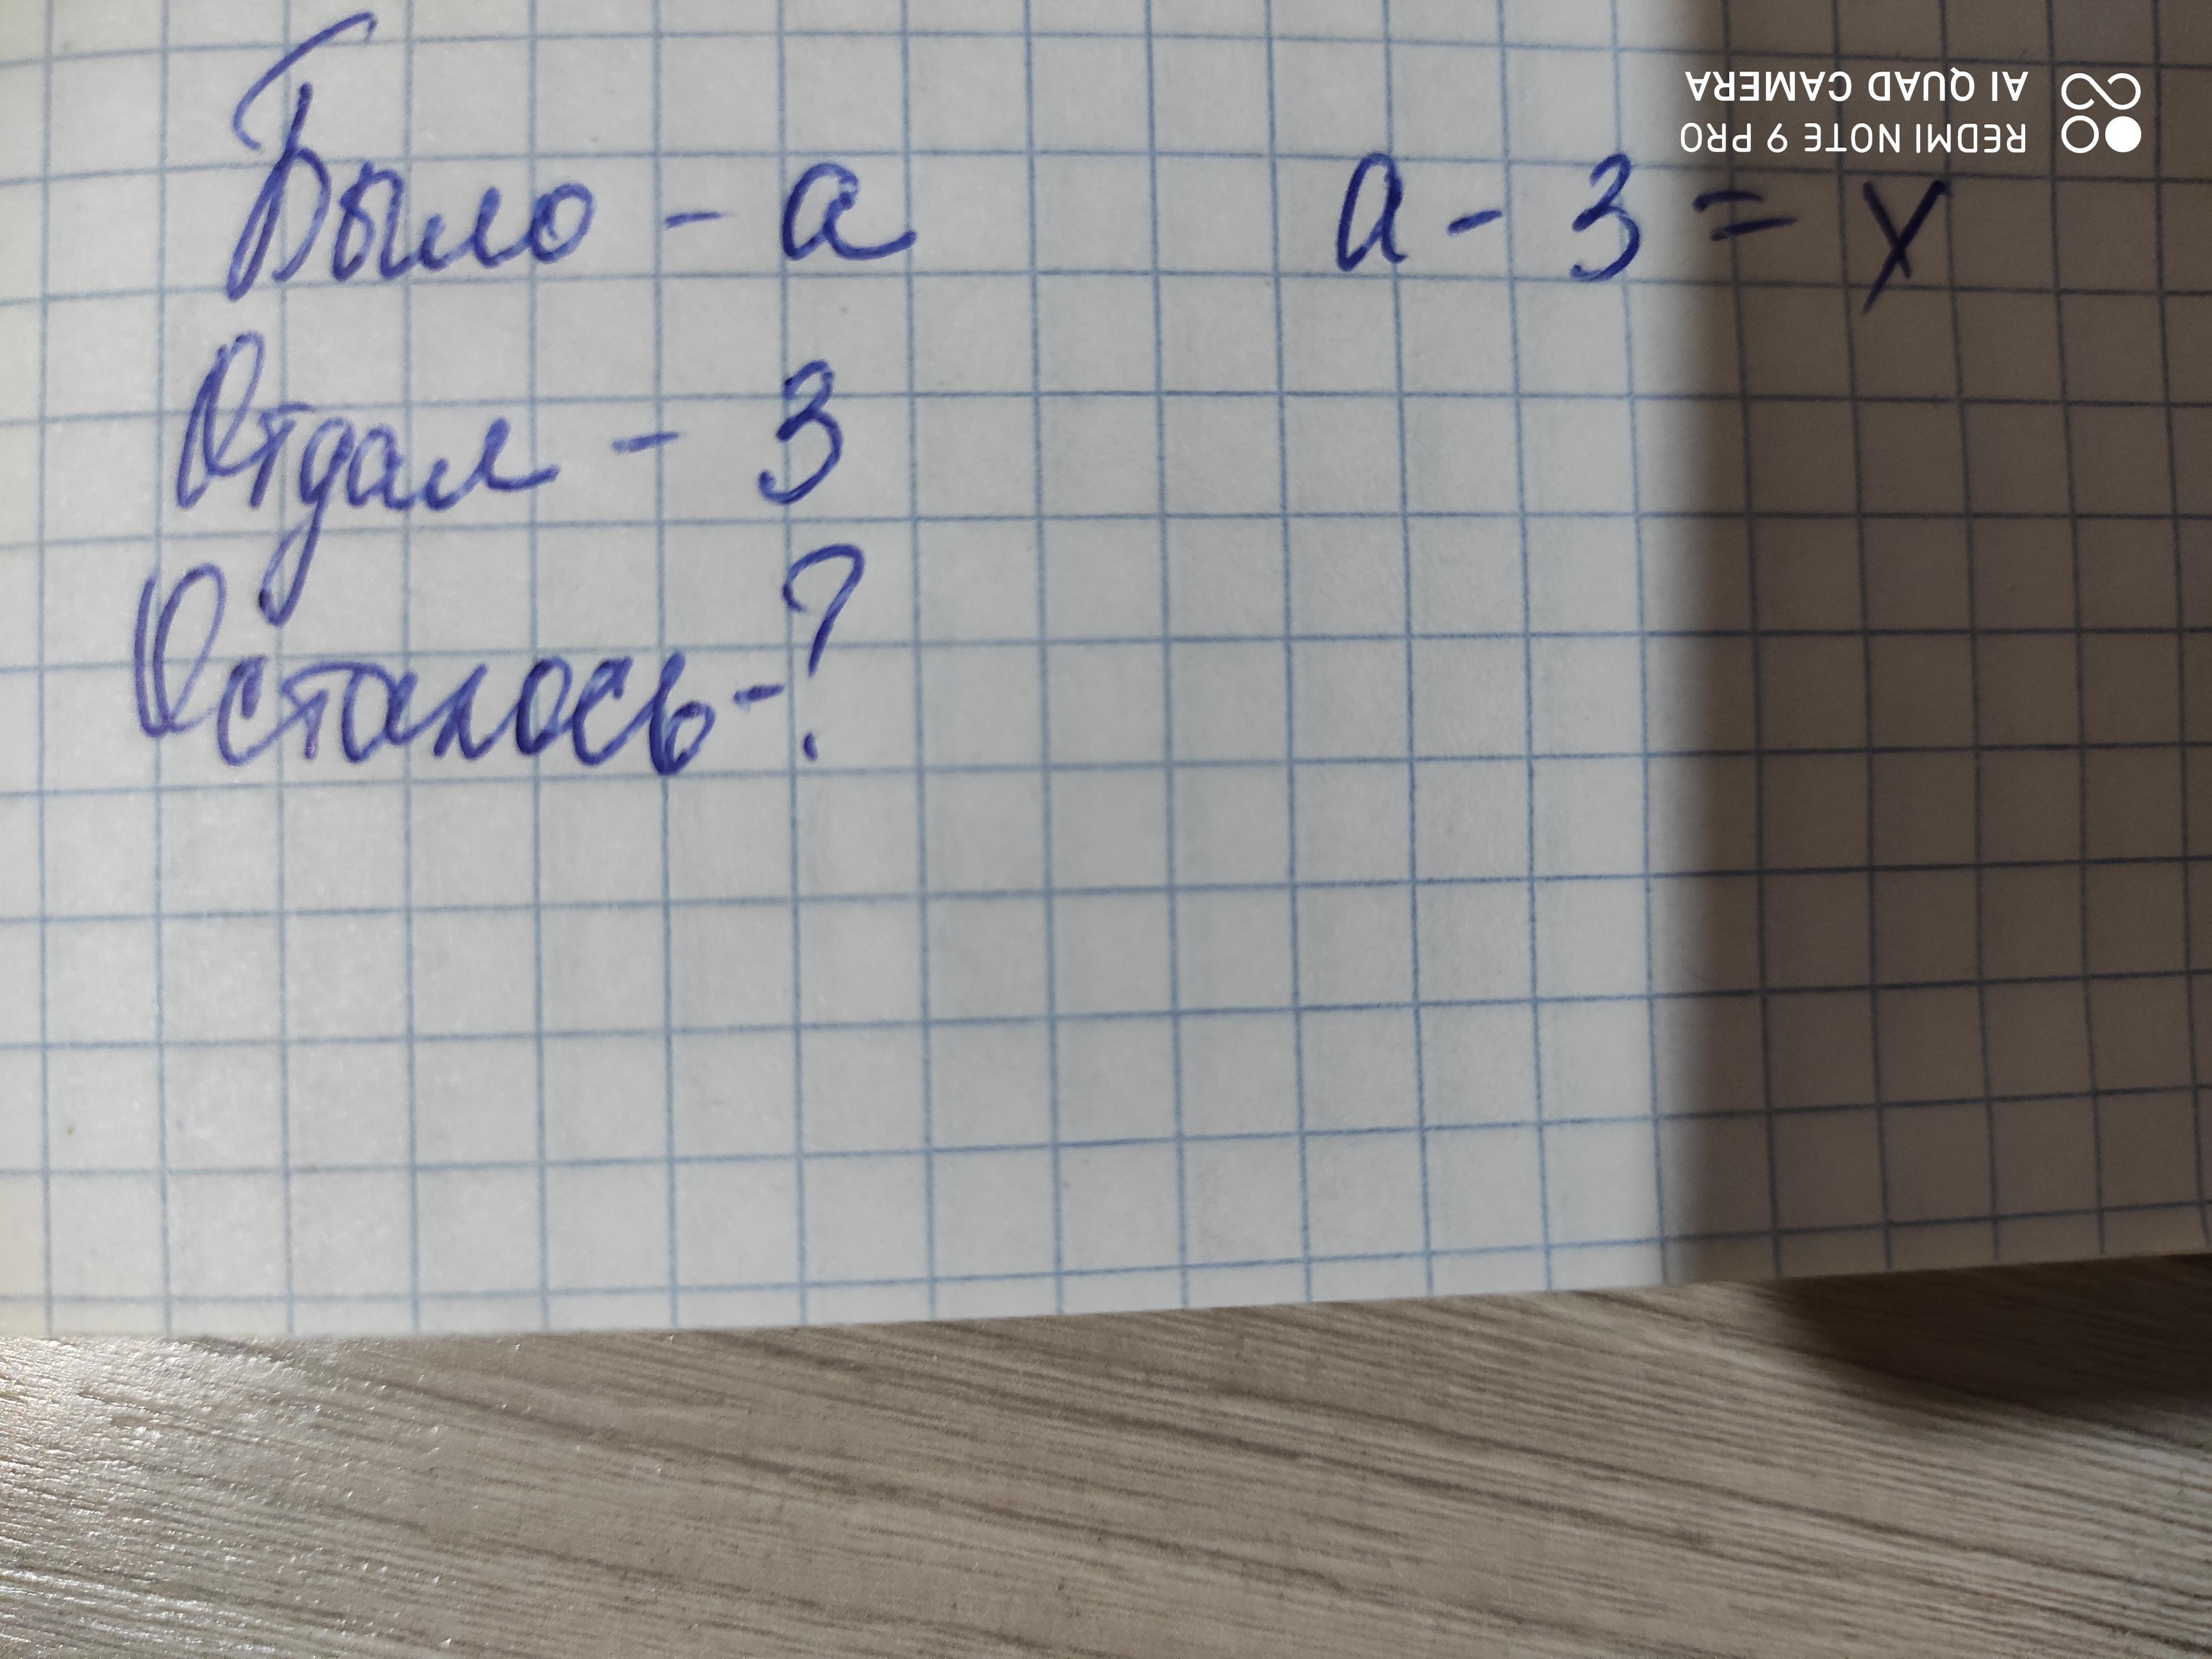 Было - а
а - 3 = х
Отдал - 3
Осталось - ?
REDMI NOTE 9 PRO
AI QUAD CAMERA